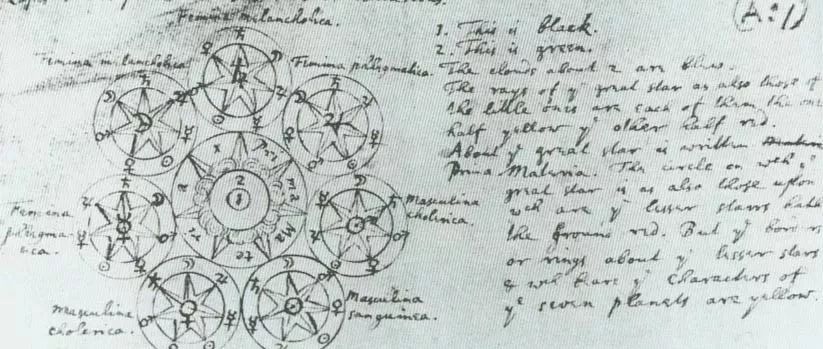 Femina melancholica.
Femina melancholica
Femina phlegmatica.
Femina
phlegma
tica.
Masculina
cholerica.
Masculina
cholerica.
Masculina
sanguinea.
Pri
ma
Ma
te
ri
a
2
1
1. This is black.
2. This is green.
The clouds about 2 are blew.
The rays of yͤ great star as also those of
the little ones are each of them the one
half yellow yͤ other half red.
About yͤ great star is written
Prima Materia. The circle on wᶜʰ yͤ
great star is as also those upon
wᶜʰ are yͤ lesser starrs hath
the ground red. But yͤ borders
or rings about yͤ lesser stars
wᶜʰ beare yͤ characters of
yͤ seven planets are yellow.